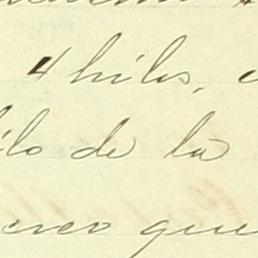 4 hilos,
ilo de la
creo que